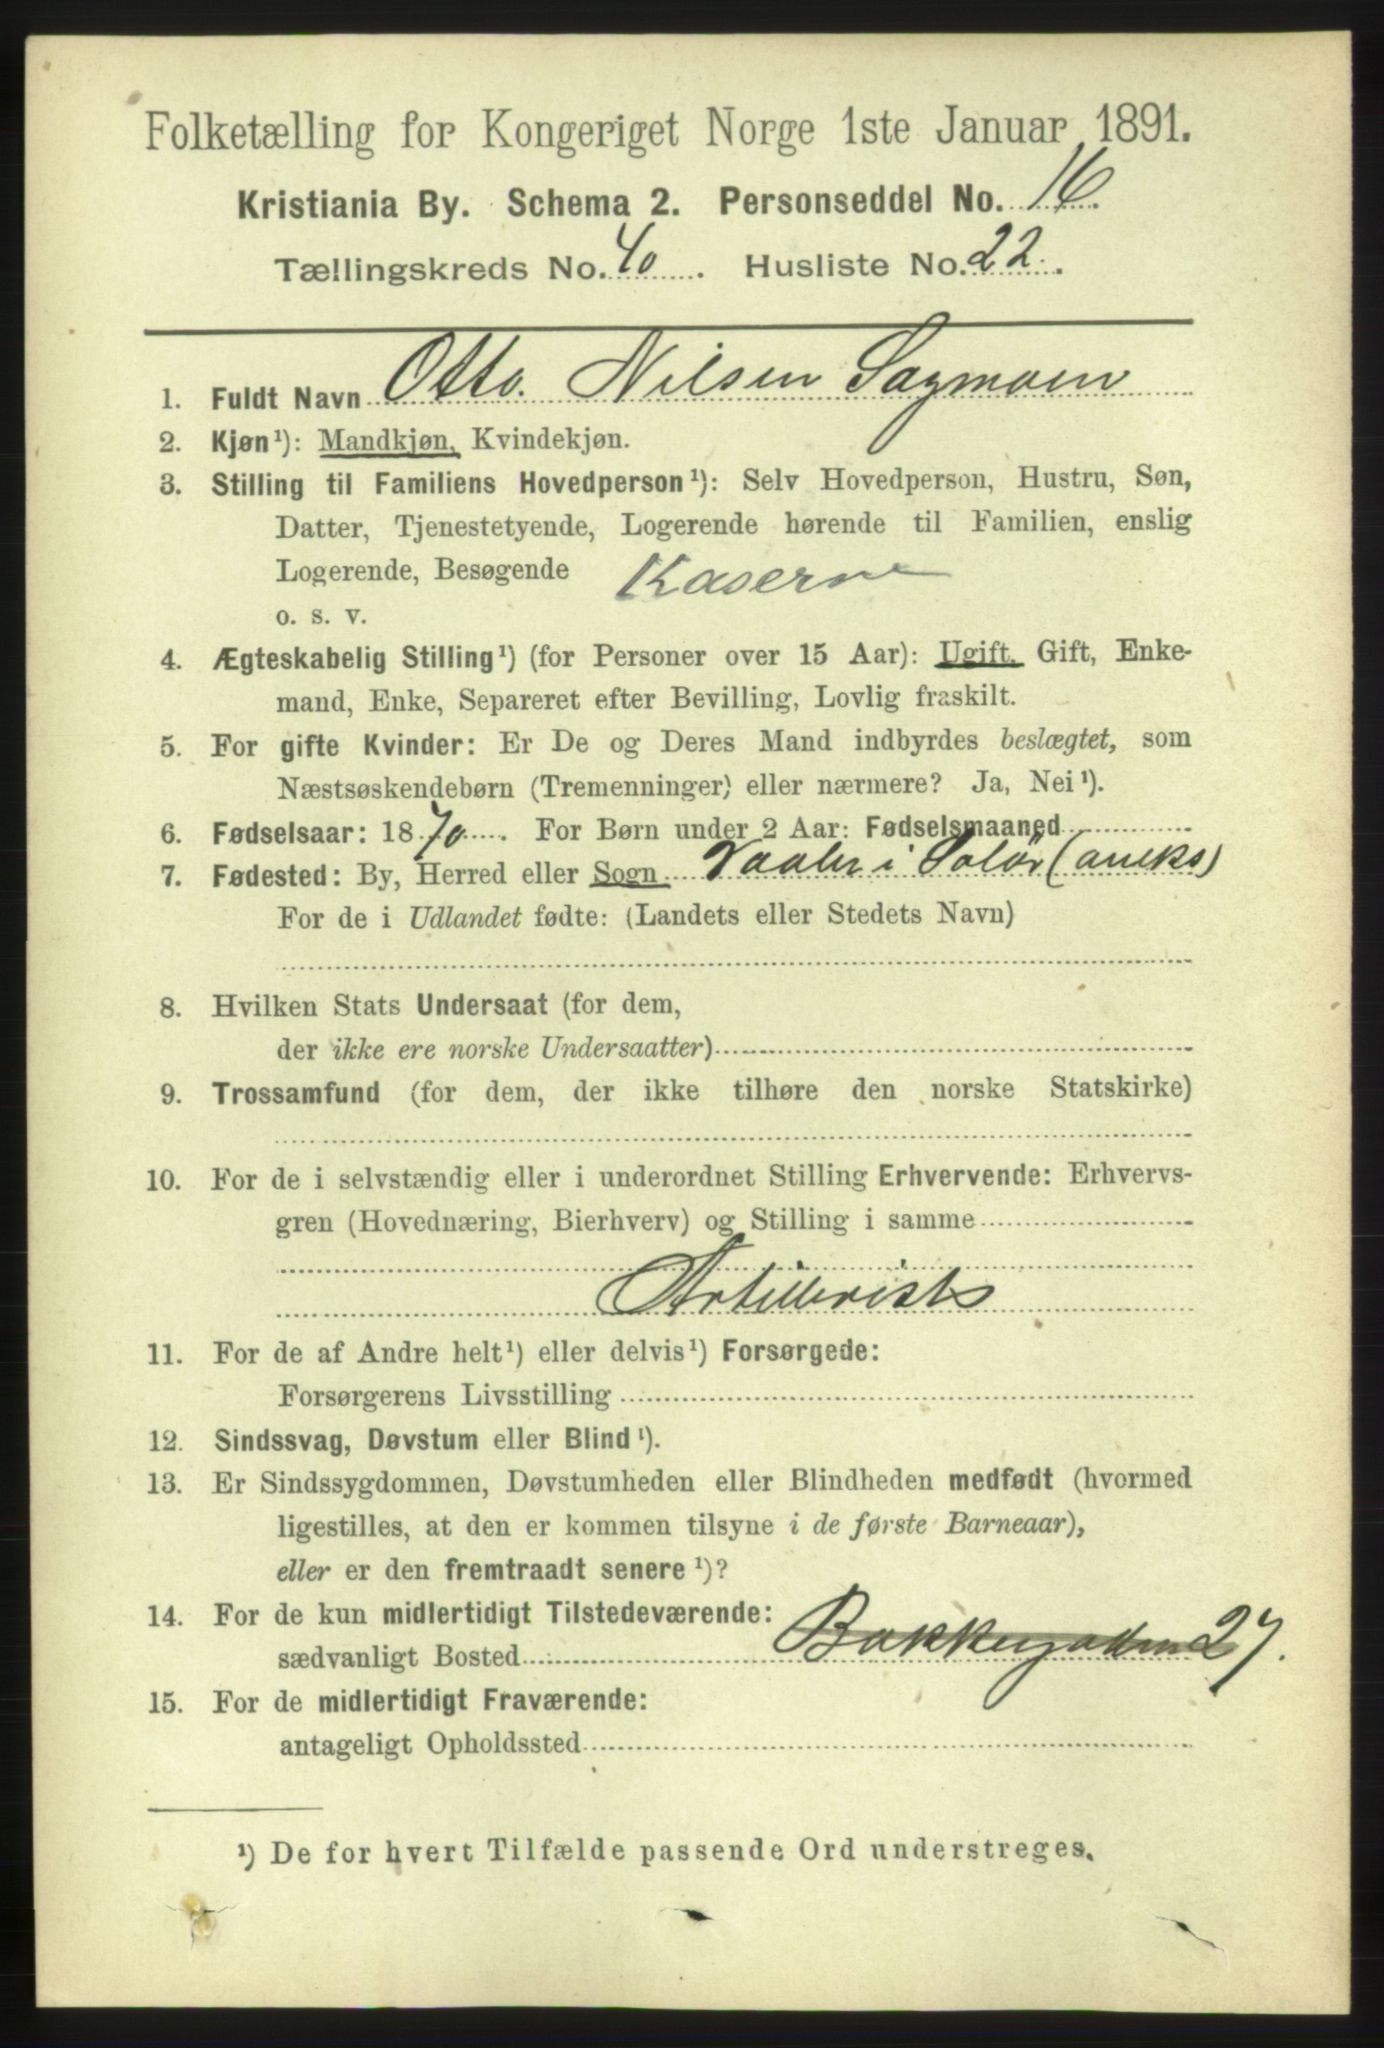 Folketælling for Kongeriget Norge 1ste Januar 1891.
Kristiania By. Schema 2. Personseddel No. 16.
Tællingskreds No. 40. Husliste No. 22.
1. Fuldt Navn Otto. Nilsen Sagmoen
2. Kjøn¹): Mandkjøn, Kvindekjøn.
3. Stilling til Familiens Hovedperson¹): Selv Hovedperson, Hustru, Søn,
Datter, Tjenestetyende, Logerende hørende til Familien, enslig
Logerende, Besøgende Kaserne
o. s. v.
4. Ægteskabelig Stilling¹) (for Personer over 15 Aar): Ugift, Gift, Enke-
mand, Enke, Separeret efter Bevilling, Lovlig fraskilt.
5. For gifte Kvinder: Er De og Deres Mand indbyrdes beslægtet, som
Næstsøskendebørn (Tremenninger) eller nærmere? Ja, Nei¹).
6. Fødselsaar: 1870. For Børn under 2 Aar: Fødselsmaaned
7. Fødested: By, Herred eller Sogn Vaaler i Solör (aneks)
For de i Udlandet fødte: (Landets eller Stedets Navn)
8. Hvilken Stats Undersaat (for dem,
der ikke ere norske Undersaatter)
9. Trossamfund (for dem, der ikke tilhøre den norske Statskirke)
10. For de i selvstændig eller i underordnet Stilling Erhvervende: Erhvervs-
gren (Hovednæring, Bierhverv) og Stilling i samme
Artillerist
11. For de af Andre helt¹) eller delvis¹) Forsørgede:
Forsørgerens Livsstilling
12. Sindssvag, Døvstum eller Blind¹).
13. Er Sindssygdommen, Døvstumheden eller Blindheden medfødt (hvormed
ligestilles, at den er kommen tilsyne i de første Barneaar),
eller er den fremtraadt senere¹)?
14. For de kun midlertidigt Tilstedeværende:
sædvanligt Bosted Bakkegaden 27.
15. For de midlertidigt Fraværende:
antageligt Opholdssted
¹) De for hvert Tilfælde passende Ord understreges.